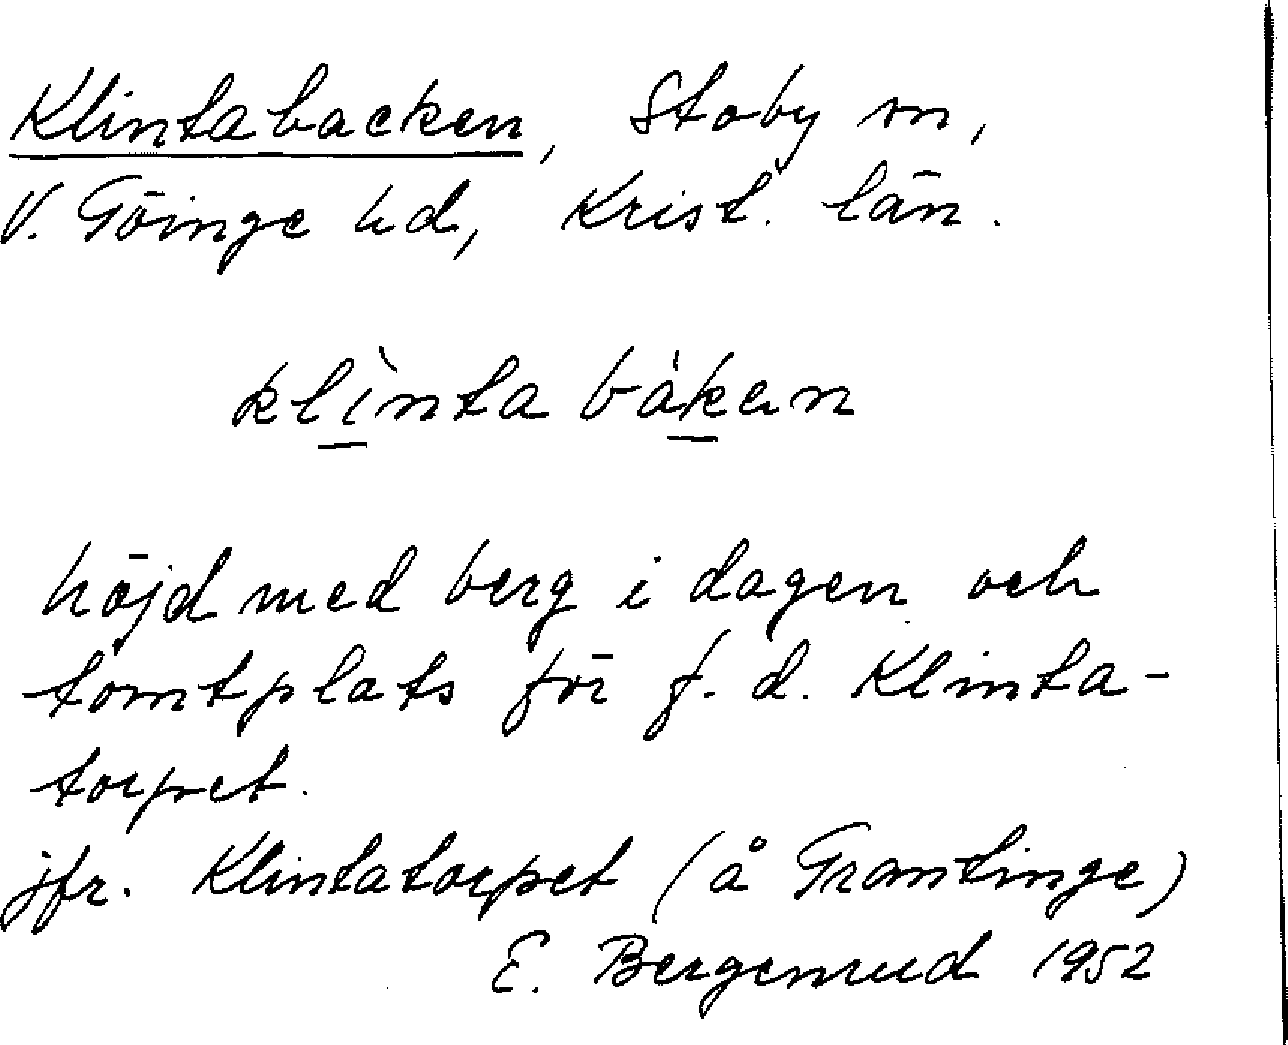 Klintabacken, Stoby sn,
V. Göinge hd, Krist. län.
klìnta bàkan
höjd med berg i dagen och
tomtplats för f. d. Klinta-
torpet.
jfr. Klintatorpet (å Grantinge)
E. Bergemrud 1952